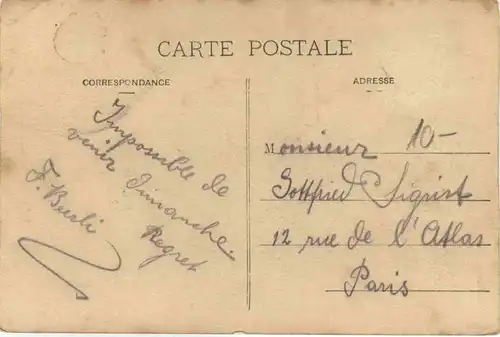 CARTE POSTALE
CORRESPONDANCE
Impossible de
venir Dimanche.
Regret
F.
ADRESSE
10-
Monsieur
Gottfried Sigrist
12 rue de l'Atlas
Paris